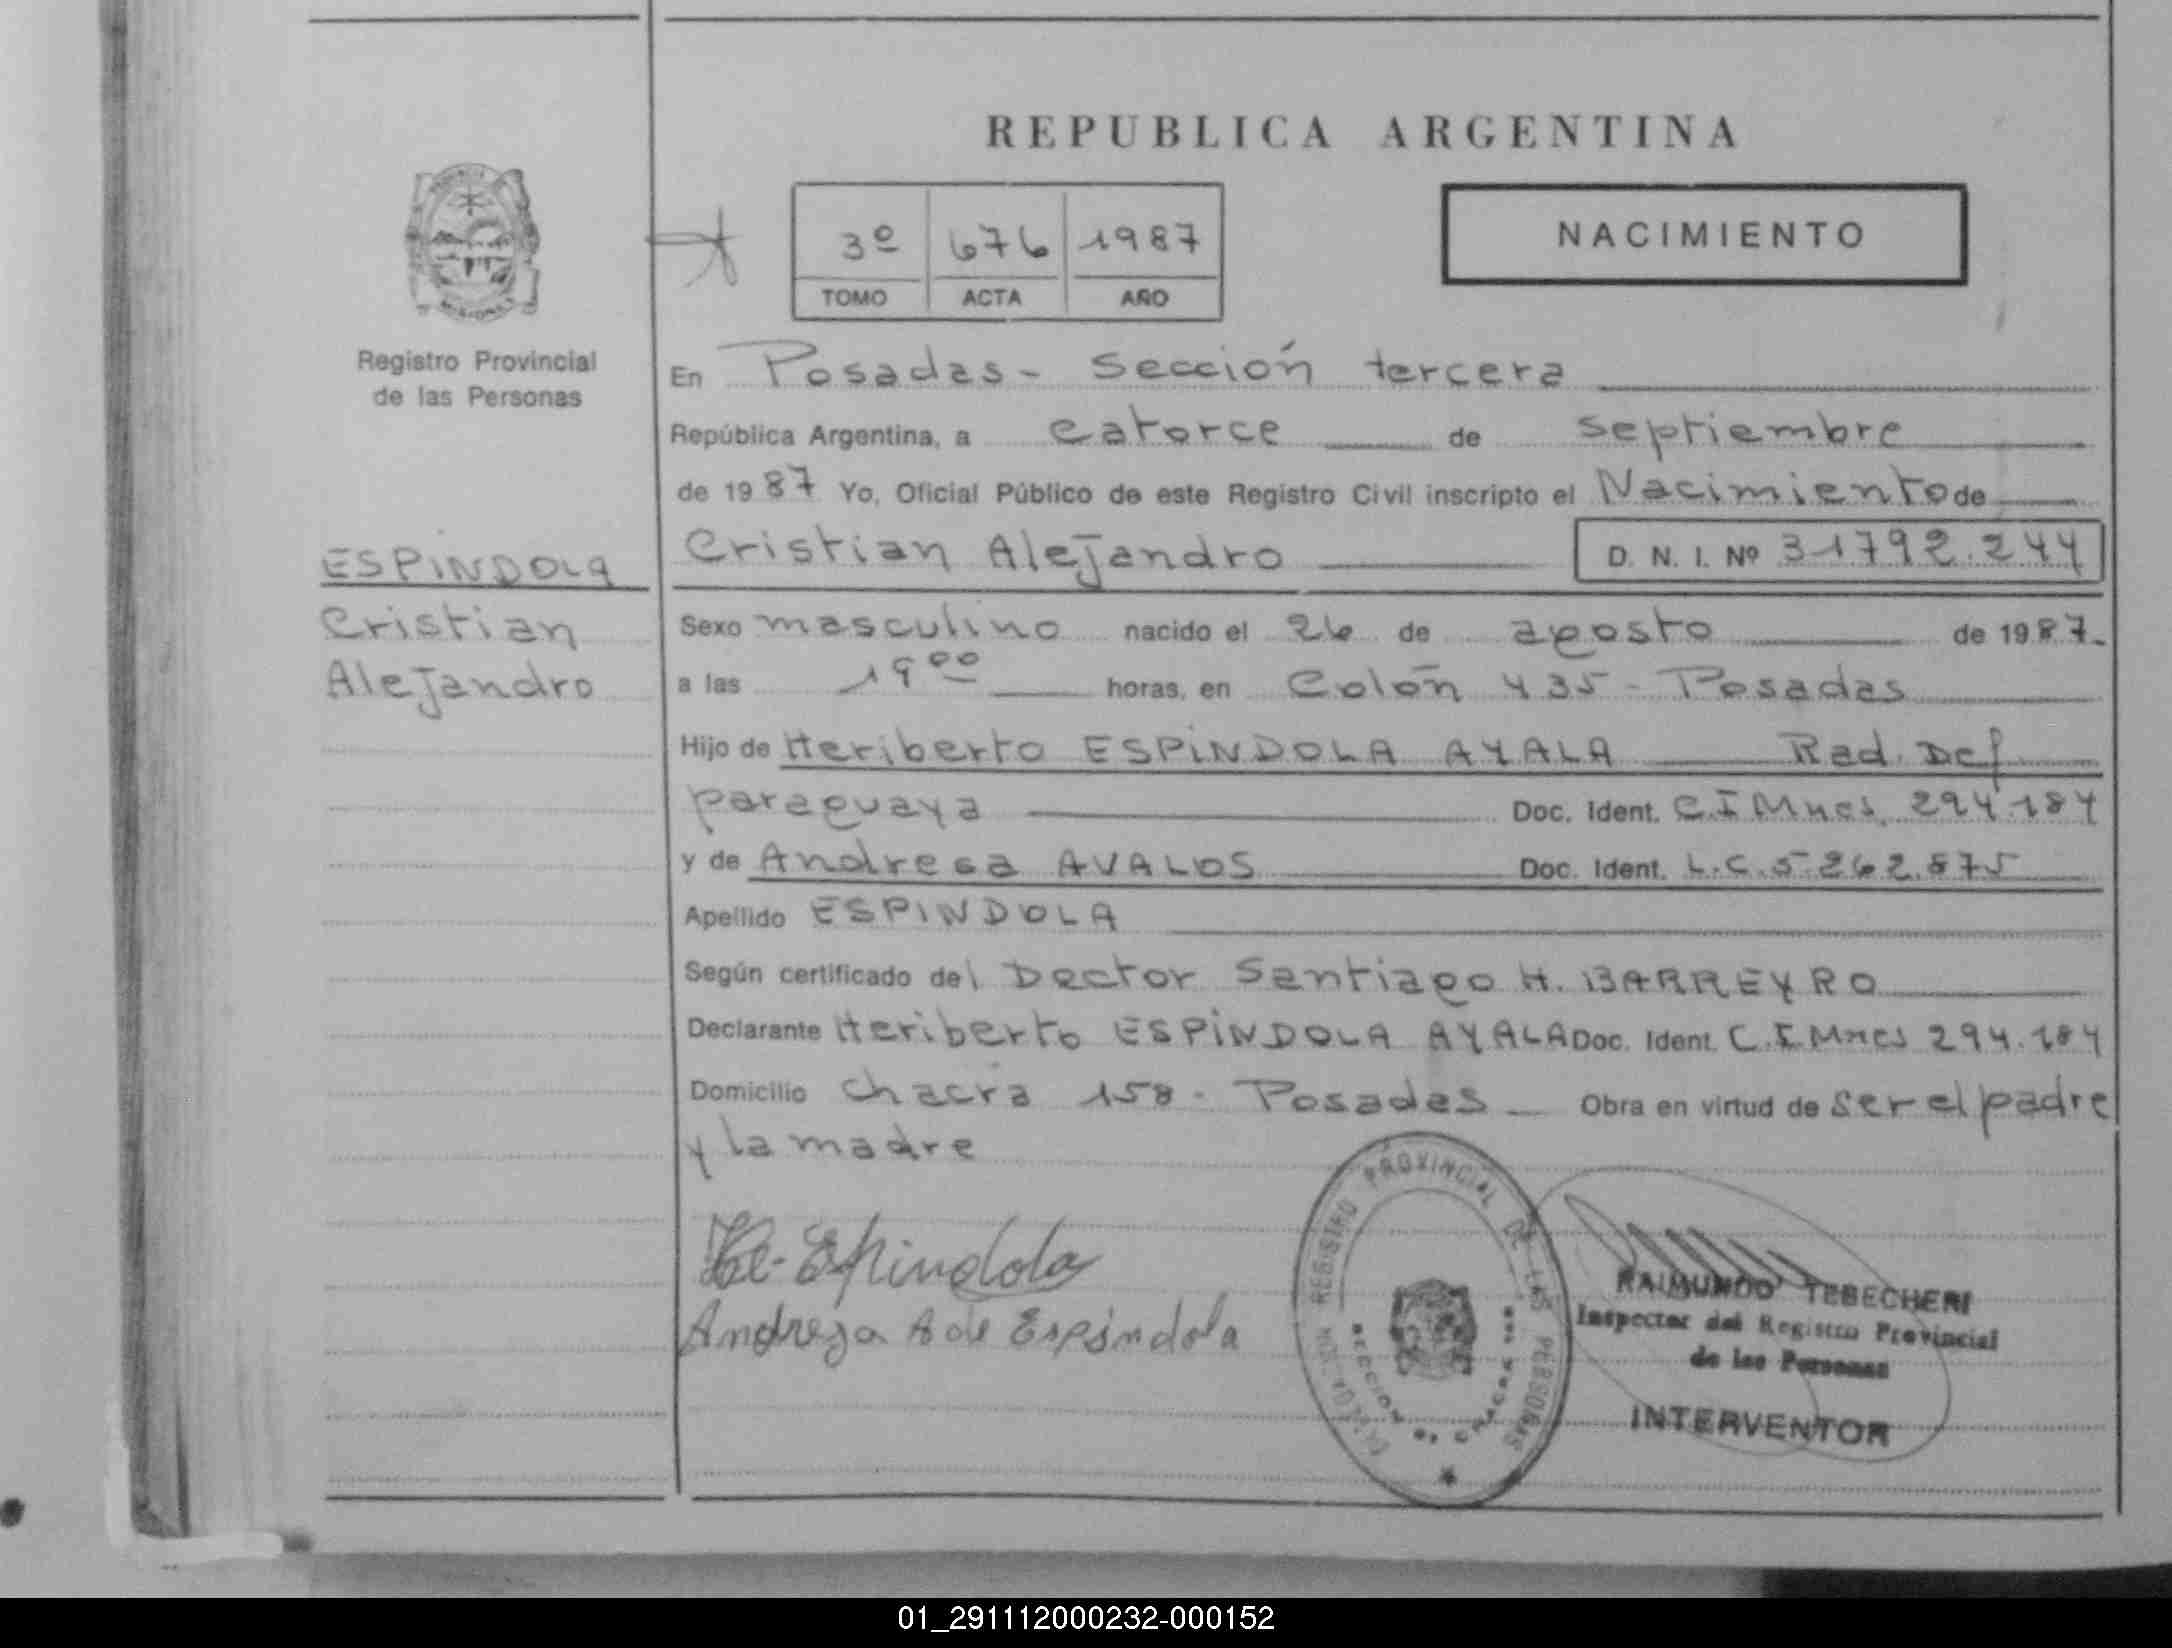 REPUBLICA ARGENTINA
3º 676 1987
TOMO ACTA AÑO
NACIMIENTO
Registro Provincial
de las Personas
ESPINDOLA
Cristian
Alejandro
En Posadas - Sección tercera
República Argentina, a catorce de septiembre
de 1987 Yo, Oficial Público de este Registro Civil inscripto el Nacimiento de
Cristian Alejandro D. N. I. Nº 31792.244
Sexo masculino nacido el 26 de agosto de 1987.
a las 19 00 horas, en Colón 435 - Posadas
Hijo de Heriberto ESPINDOLA AYALA Rad. Def
paraguaya Doc. Ident. C.I Mnes. 294.184
y de Andresa AVALOS Doc. Ident. L.C.5.262.875
Apellido ESPINDOLA
Según certificado del Doctor Santiago H. BARREYRO
Declarante Heriberto ESPINDOLA AYALA Doc. Ident. C.I Mnes 294.184
Domicilio Chacra 158 - Posadas Obra en virtud de ser el padre
y la madre
Espindola
Andresa A de Espindola
REGISTRO PROVINCIAL DE LAS PERSONAS
SECCION
RAIMUNDO TEBECHERI
Inspector del Registro Provincial
de las Personas
INTERVENTOR
01_291112000232-000152